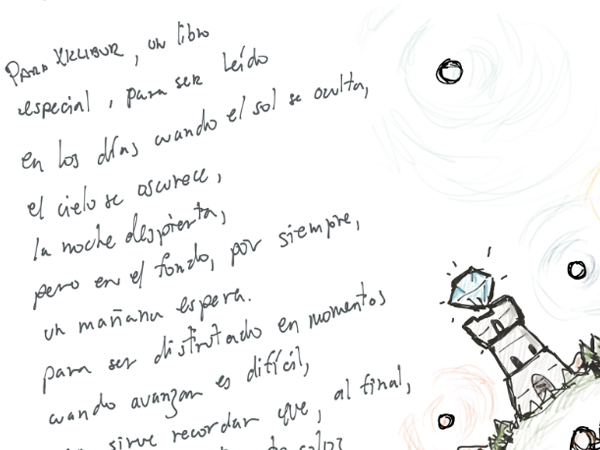 Para Xklibur, un libro
especial, para ser leído
en los días cuando el sol se oculta,
el cielo se oscurece,
la noche despierta,
pero en el fondo, por siempre,
un mañana espera.
para ser disfrutado en momentos
cuando avanzar es difícil,
sirve recordar que, al final,